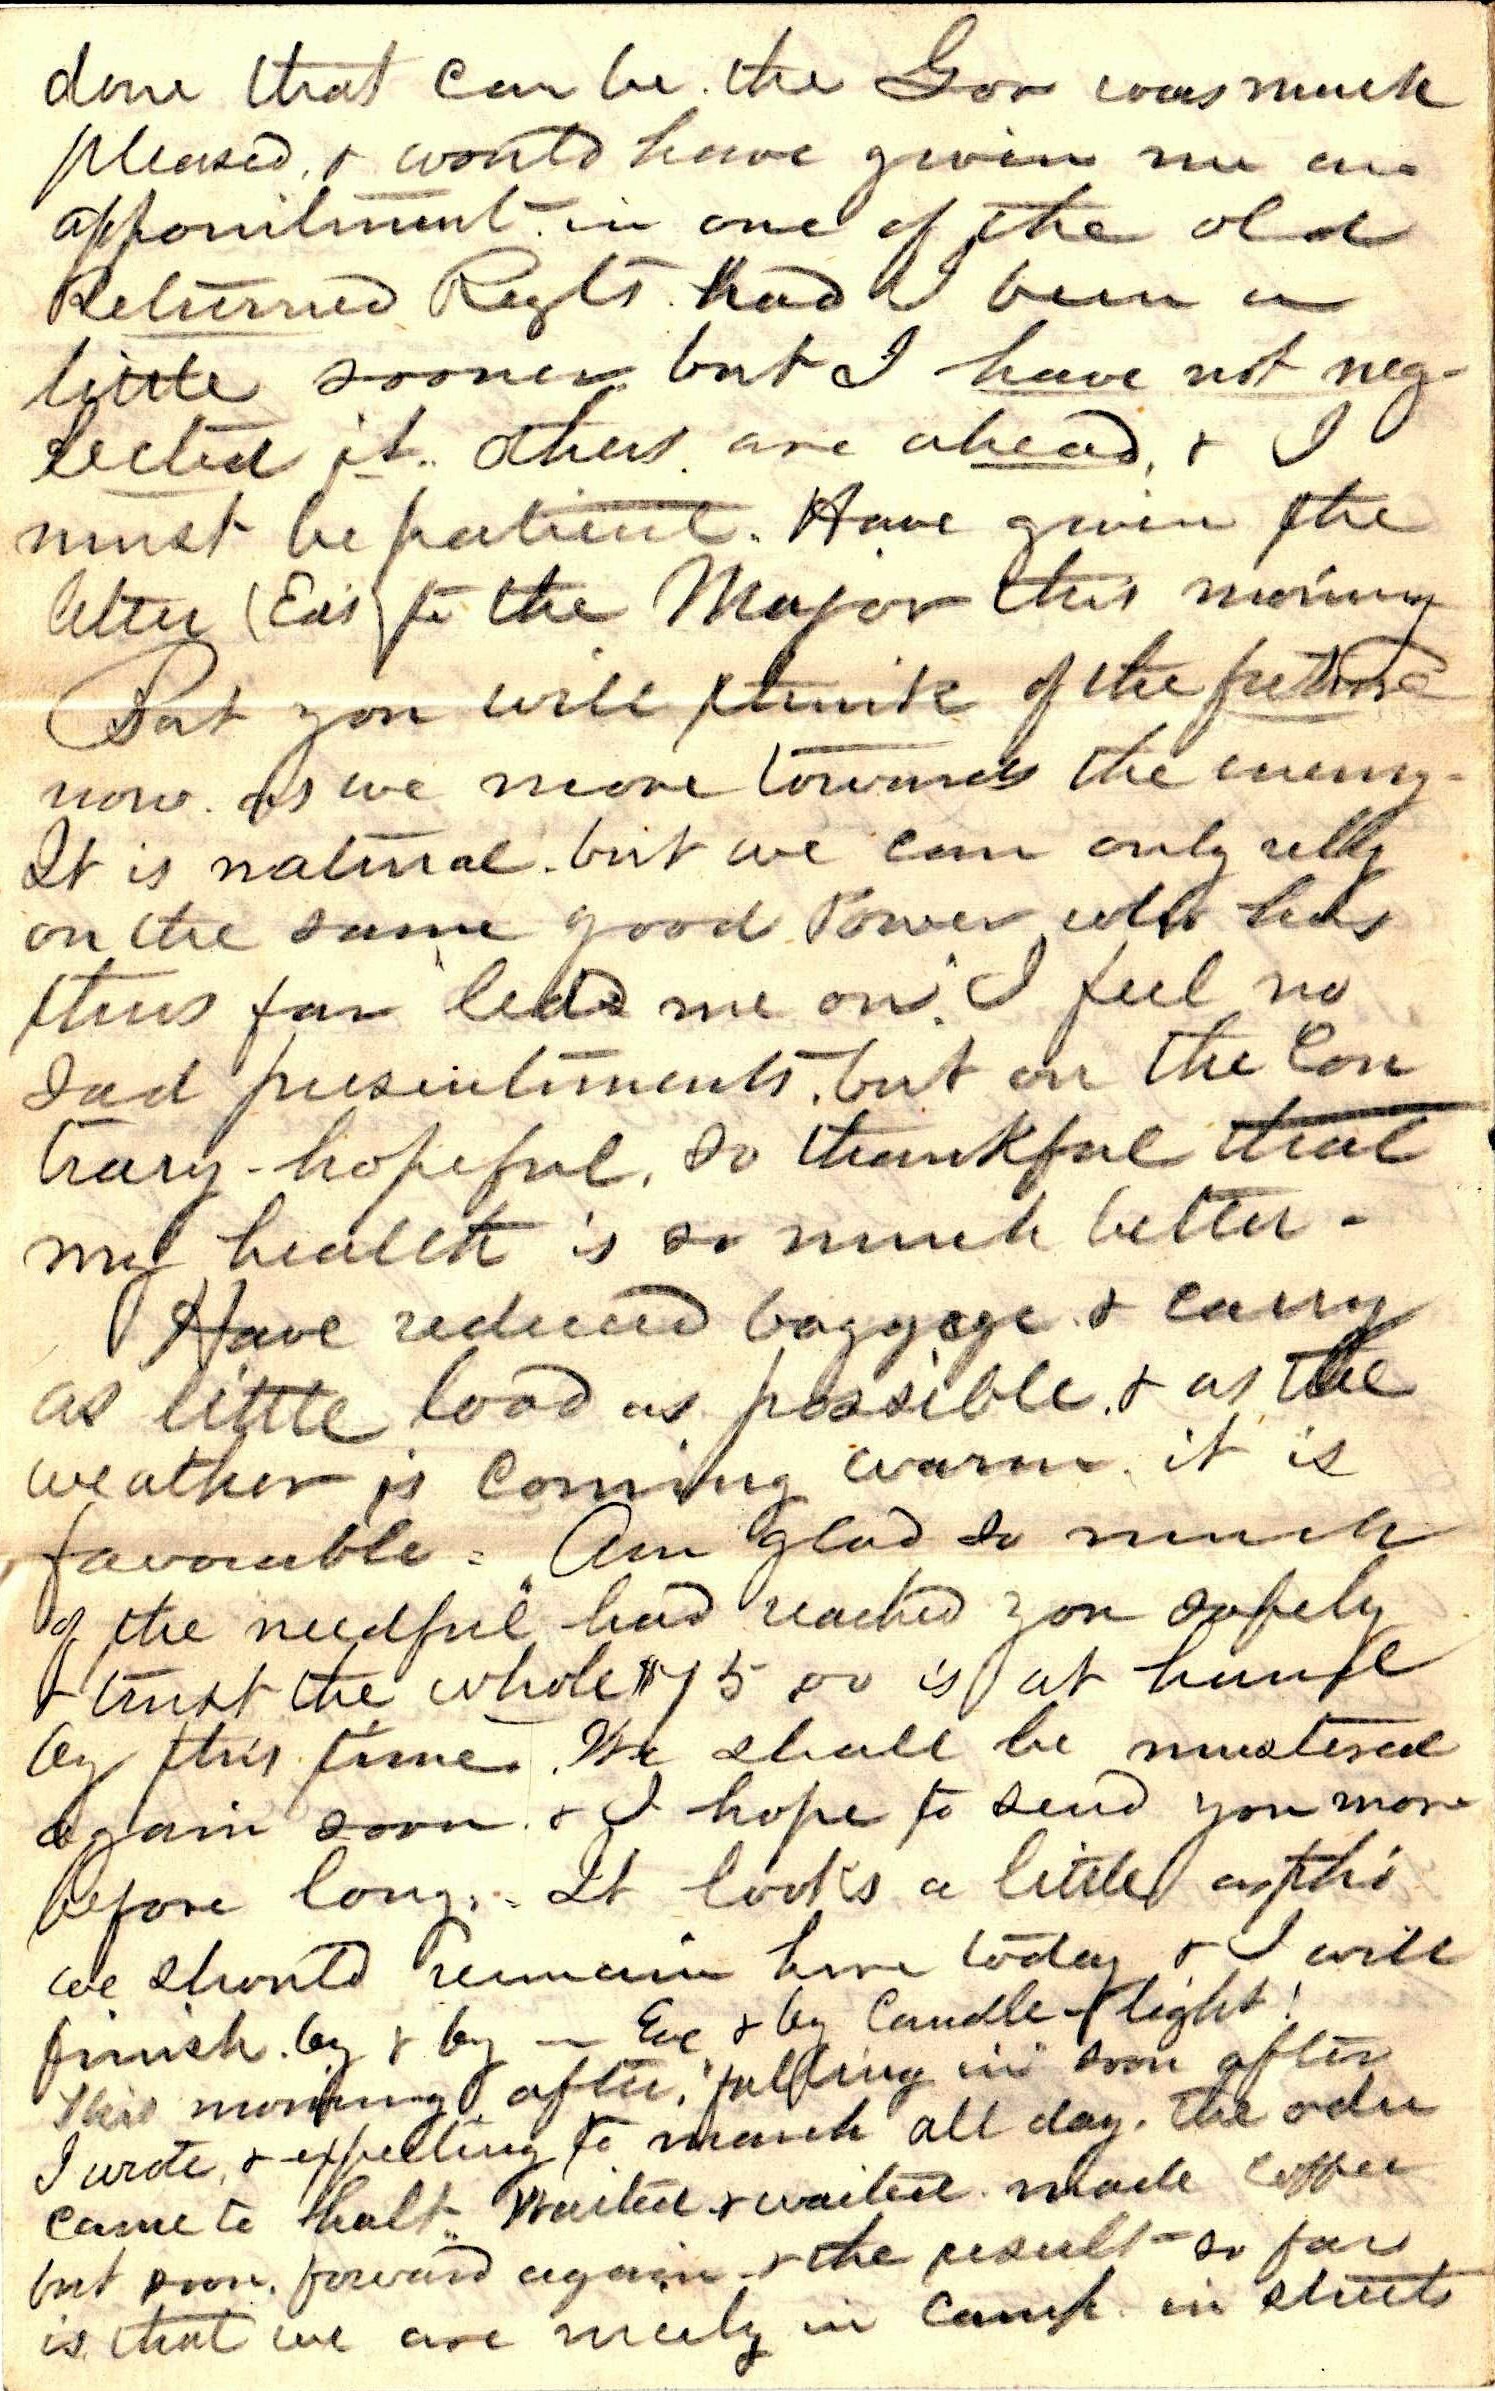 done that can be. the Gov was much
pleased, & would have given me an
appointment in one of the old
Returned Regts. had I been a
little sooner but I have not neg-
lected it.. others. are ahead, & I
must be patient. Have given the
letter (Ed's) to the Major this morning
But you will think of the future
now. as we move towards the enemy-
It is natural. but we can only relly
on the same good Power who has
thus far "led me on". I feel no
sad presentiments, but on the Con
trary - hopeful, so thankful that
my health is so much better -
Have reduced baggage & carry
as little load as possible, & as the
weather is coming warm it is
favourable = Am glad so much
of the "needful" had reached you safely
& trust the whole $75 00 is at hand
by this time. We shall be mustered
again soon. & I hope to send you more
before long.. It looks a little as tho'
we should remain here today & I will
finish. by & by — Eve & by Candle-light!
This morning after, "falling in" soon after
I wrote, & expecting to march all day. the order
came to "halt".. Waited & waited. made coffee
but soon. forward again & the result - so far
is. that we are nicely in camp. in streets